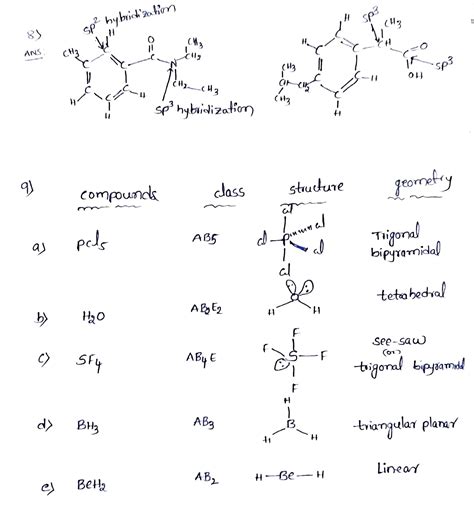 8)
ANS:
sp² hybridization
CH₃
H
O
C
N
CH₂
CH₃
CH₂
CH₃
H
H
H
sp³ hybridization
sp³
H
CH₃
H
H
C
C
O
OH
sp³
CH₃
CH
CH₂
CH₃
H
H
9) compounds class structure geometry
a) pcl₅ AB5 cl cl P cl cl cl Trigonal
bipyramidal
b) H₂O AB₂E₂ O H H tetrahedral
c) SF₄ AB₄E F F S F F see-saw
(or)
trigonal bipyramid
d) BH₃ AB₃ H B H H triangular planar
e) BeH₂ AB₂ H-Be-H Linear